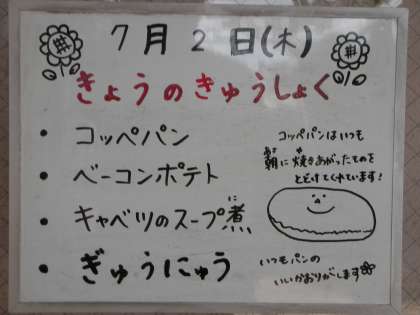 7月2日(木)
きょうのきゅうしょく
・コッペパン
・ベーコンポテト
・キャベツのスープ煮
に
・ぎゅうにゅう
コッペパンはいつも
朝に焼きあがったものを
あさ や
とどけてくれています!
いつもパンの
いいかおりがします